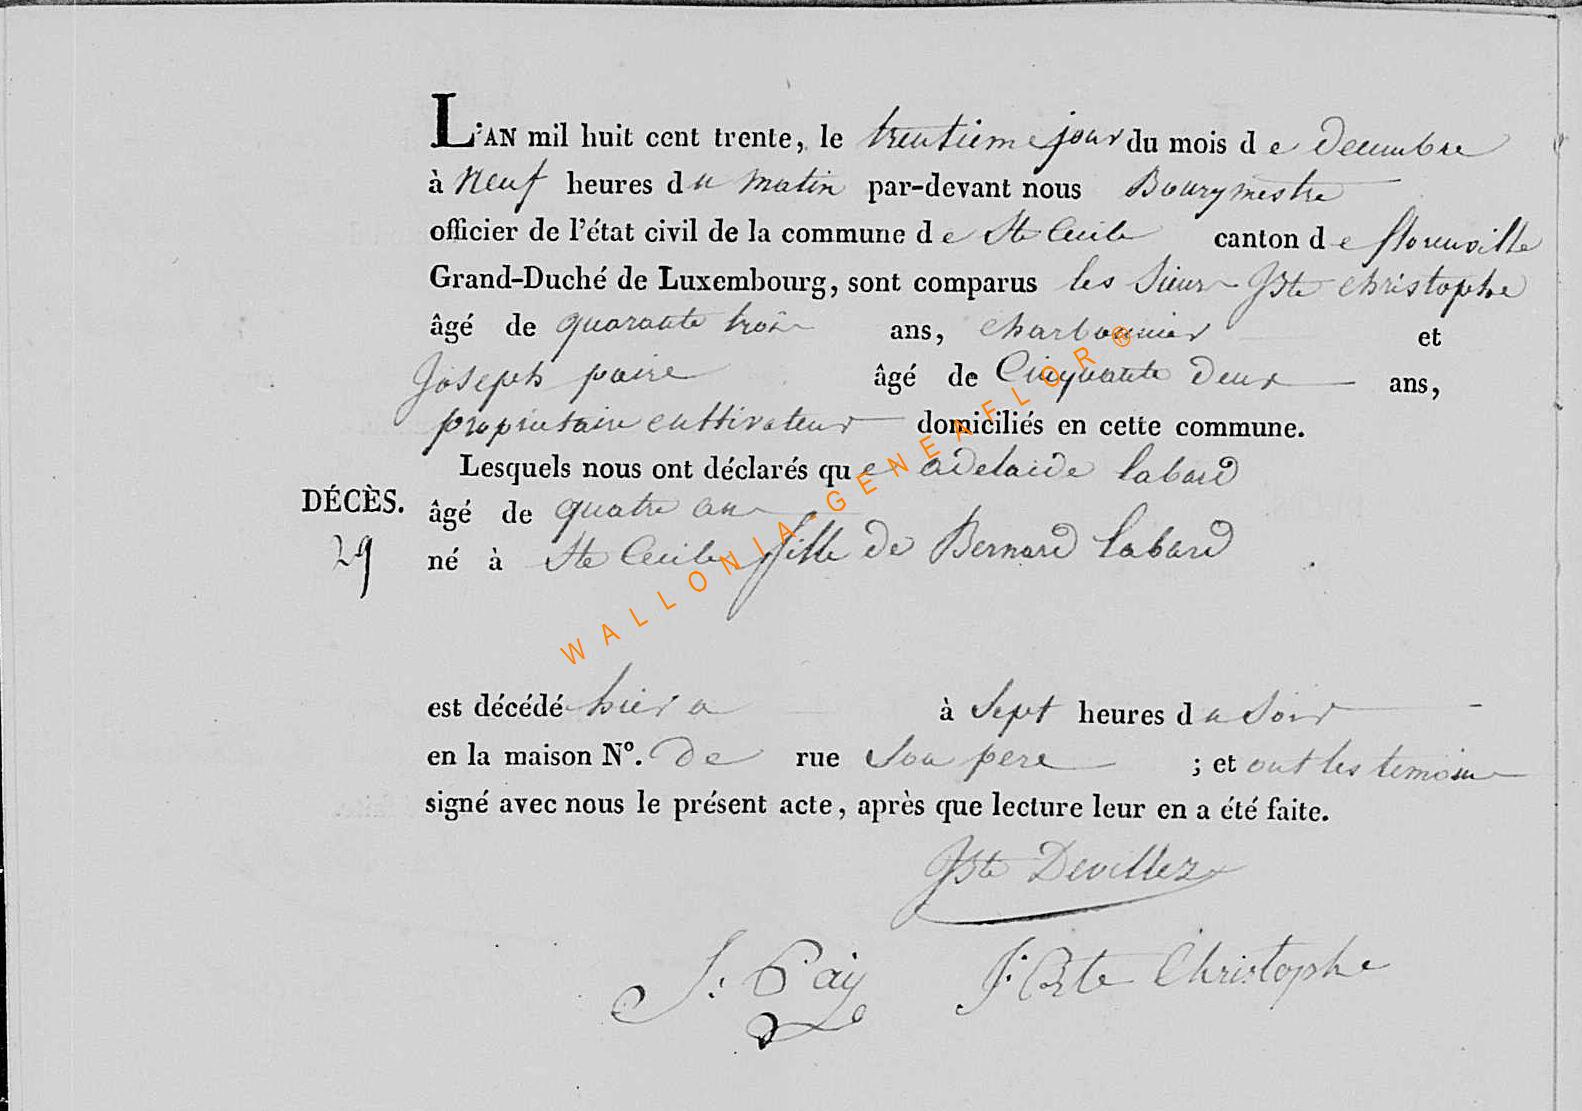 L'AN mil huit cent trente, le trentieme jour du mois d e decembre
à neuf heures d u matin par-devant nous Bourgmestre
officier de l'état civil de la commune d e Ste Cecile canton d e florenville
Grand-Duché de Luxembourg, sont comparus les Sieurs Jbte christophe
âgé de quarante trois ans, charbonnier et
Joseph paire âgé de Cinquante deux ans,
proprietaire cultivateur domiciliés en cette commune.
Lesquels nous ont déclarés qu e adelaide Labard
DÉCÈS. âgé de quatre ans
29 né à Ste Cecile fille de Bernard Labard
est décédé hier a à Sept heures d u Soir
en la maison N°. de rue Son pere ; et ont les temoins
signé avec nous le présent acte, après que lecture leur en a été faite.
Jbte Devillez
J: Pay J: Bte Christophe
WALLONIA-GENEAFLOR®